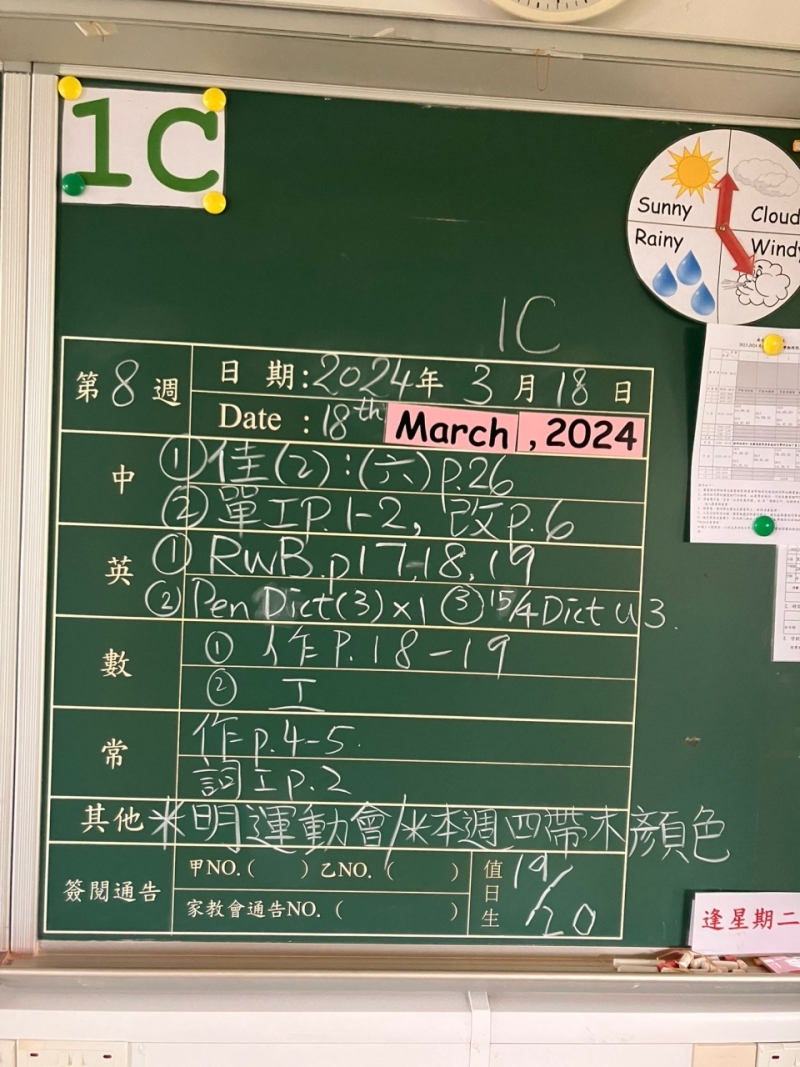 1C
Sunny
Cloud
Rainy
Windy
1C
第8週
日期:2024年3月18日
Date : 18th March, 2024
中
①佳(2):(六)p.26
②單工P.1-2, 改p.6
英
① RWB.p17,18,19
② Pen Dict(3)×1 ③ 15/4 Dict U3.
數
① 作P.18-19
② 工
常
作p.4-5.
詞工p.2
其他 *明運動會/*本週四帶木顏色
簽閱通告
甲NO.( ) 乙NO.( )
家教會通告NO.( )
值日生
19/20
逢星期二